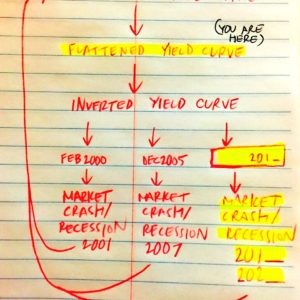 (YOU ARE
HERE)
FLATTENED YIELD CURVE
INVERTED YIELD CURVE
FEB 2000 DEC 2005 201_
MARKET MARKET MARKET
CRASH/ CRASH/ CRASH/
RECESSION RECESSION RECESSION
2001 2007 201_
202_